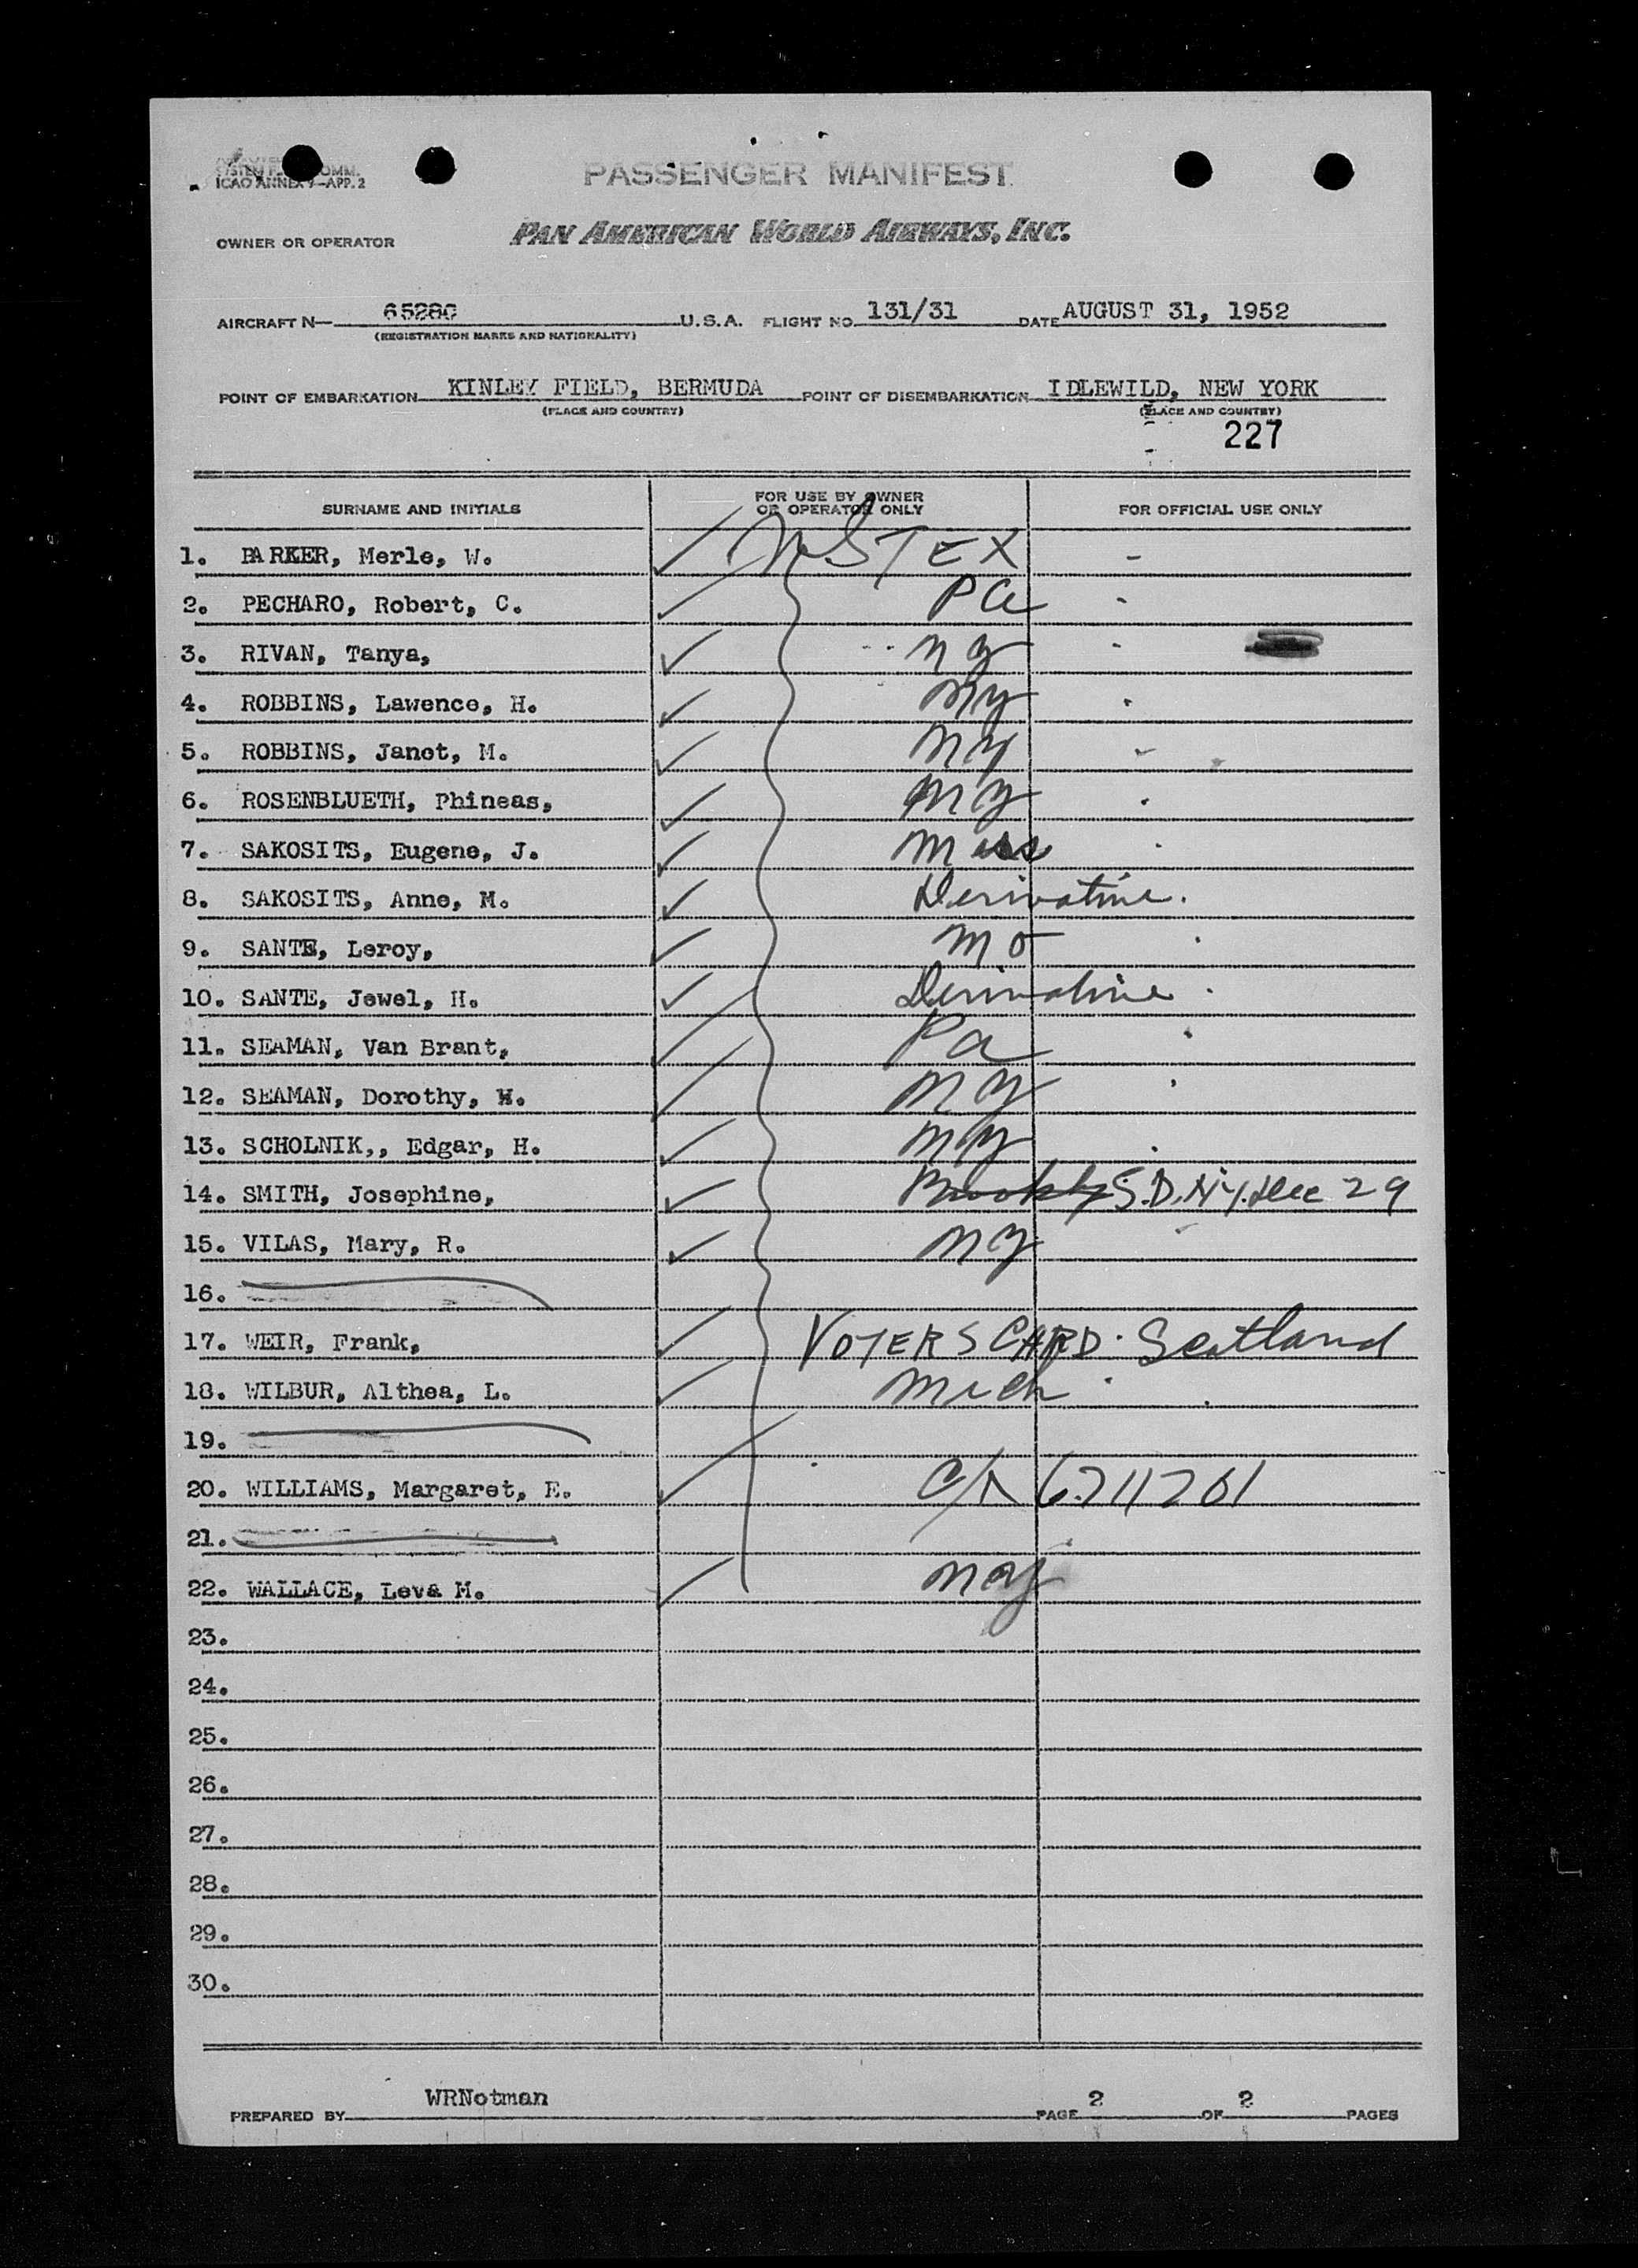 ICAO ANNEX 9—APP. 2
PASSENGER MANIFEST
OWNER OR OPERATOR PAN AMERICAN WORLD AIRWAYS, INC.
AIRCRAFT N— 65280 U.S.A. FLIGHT NO. 131/31 DATE AUGUST 31, 1952
(REGISTRATION MARKS AND NATIONALITY)
POINT OF EMBARKATION KINLEY FIELD, BERMUDA POINT OF DISEMBARKATION IDLEWILD, NEW YORK
(PLACE AND COUNTRY) (PLACE AND COUNTRY)
227
SURNAME AND INITIALS FOR USE BY OWNER OR OPERATOR ONLY FOR OFFICIAL USE ONLY
1. PARKER, Merle, W. US TEX
2. PECHARO, Robert, C. Pa
3. RIVAN, Tanya, ny
4. ROBBINS, Lawence, H. ny
5. ROBBINS, Janet, M. ny
6. ROSENBLUETH, Phineas, ny
7. SAKOSITS, Eugene, J. Mass
8. SAKOSITS, Anne, M. Derivative.
9. SANTE, Leroy, Mo
10. SANTE, Jewel, H. Derivative
11. SEAMAN, Van Brant, Pa
12. SEAMAN, Dorothy, W. ny
13. SCHOLNIK,, Edgar, H. ny
14. SMITH, Josephine, Brooklyn S.D.N.Y. Dec 29
15. VILAS, Mary, R. ny
16.
17. WEIR, Frank, VOTERS CARD. Scotland
18. WILBUR, Althea, L. Mich
19.
20. WILLIAMS, Margaret, E. C/N 6211201
21.
22. WALLACE, Leva M. ny
23.
24.
25.
26.
27.
28.
29.
30.
PREPARED BY WRNotman PAGE 2 OF 2 PAGES